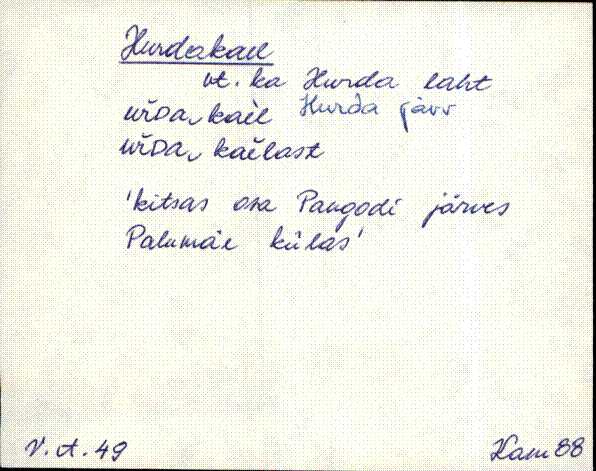 Hurdakael
vt. ka Hurda laht
uřDa, kaèl Hurda järv
uřDa, kaèlast
'kitsas osa Pangodi järves
Palumäe külas'
V.A.49 Kam 88